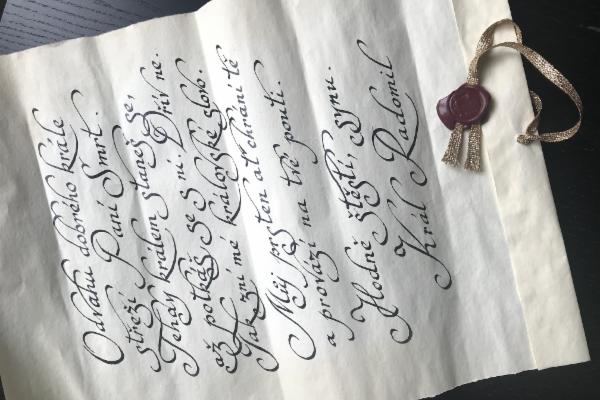 Odvahu dobrého krále
střeží Paní Smrt.
Tehdy králem staneš se,
až potkáš se s ní. Dřív ne.
Tak zní mé královské slovo.
Můj prsten ať chrání tě
a provází na tvé pouti.
Hodně štěstí, synu.
Král Radomil